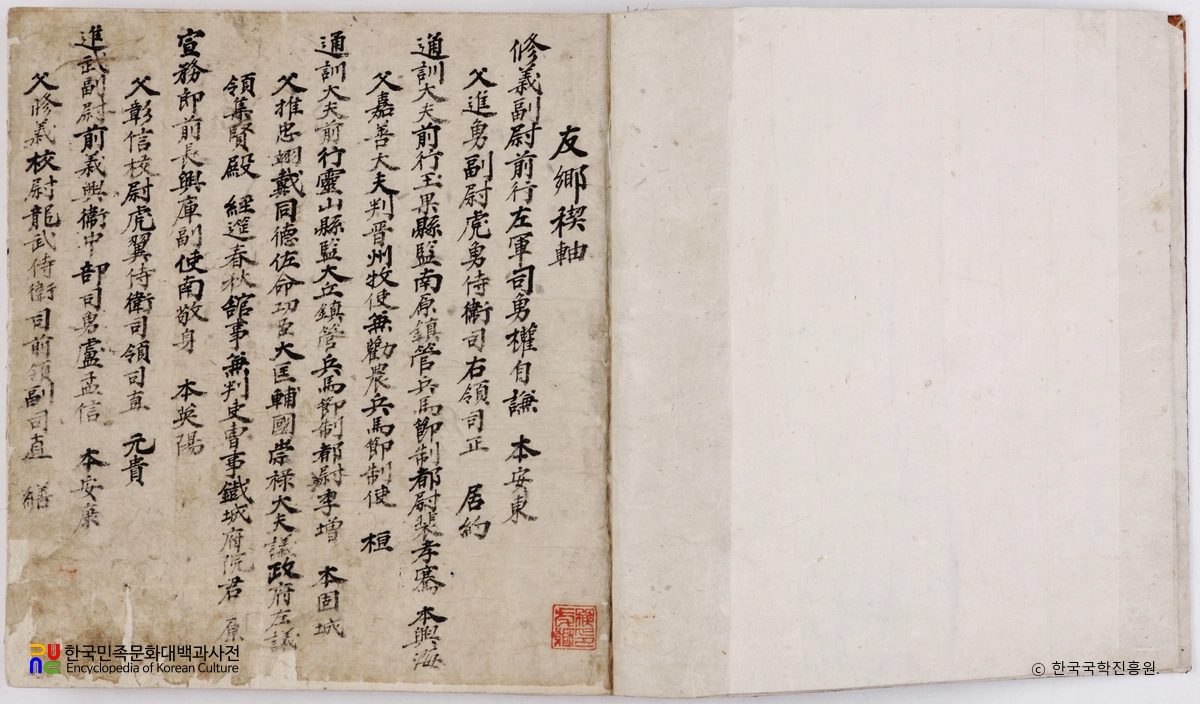 友鄕禊軸
修義副尉前行左軍司勇權自謙 本安東
父進勇副尉虎勇侍衛司右領司正 居約
通訓大夫前行玉果縣監南原鎮管兵馬節制都尉裴孝騫 本興海
父嘉善大夫判晋州牧使兼勸農兵馬節制使 桓
通訓大夫前行靈山縣監大丘鎮管兵馬節制都尉李增 本固城
父推忠翊戴同德佐命功臣大匡輔國崇禄大夫議政府左議
領集賢殿 經筵春秋館事兼判吏曺事鐵城府院君 原
宣務郎前長興庫副使南敬身 本英陽
父彰信校尉虎翼侍衛司領司直 元貴
進武副尉前義興衛中部司勇盧孟信 本安康
父修義校尉龍武侍衛司前領副司直 繕
한국민족문화대백과사전
Encyclopedia of Korean Culture
ⓒ 한국국학진흥원.